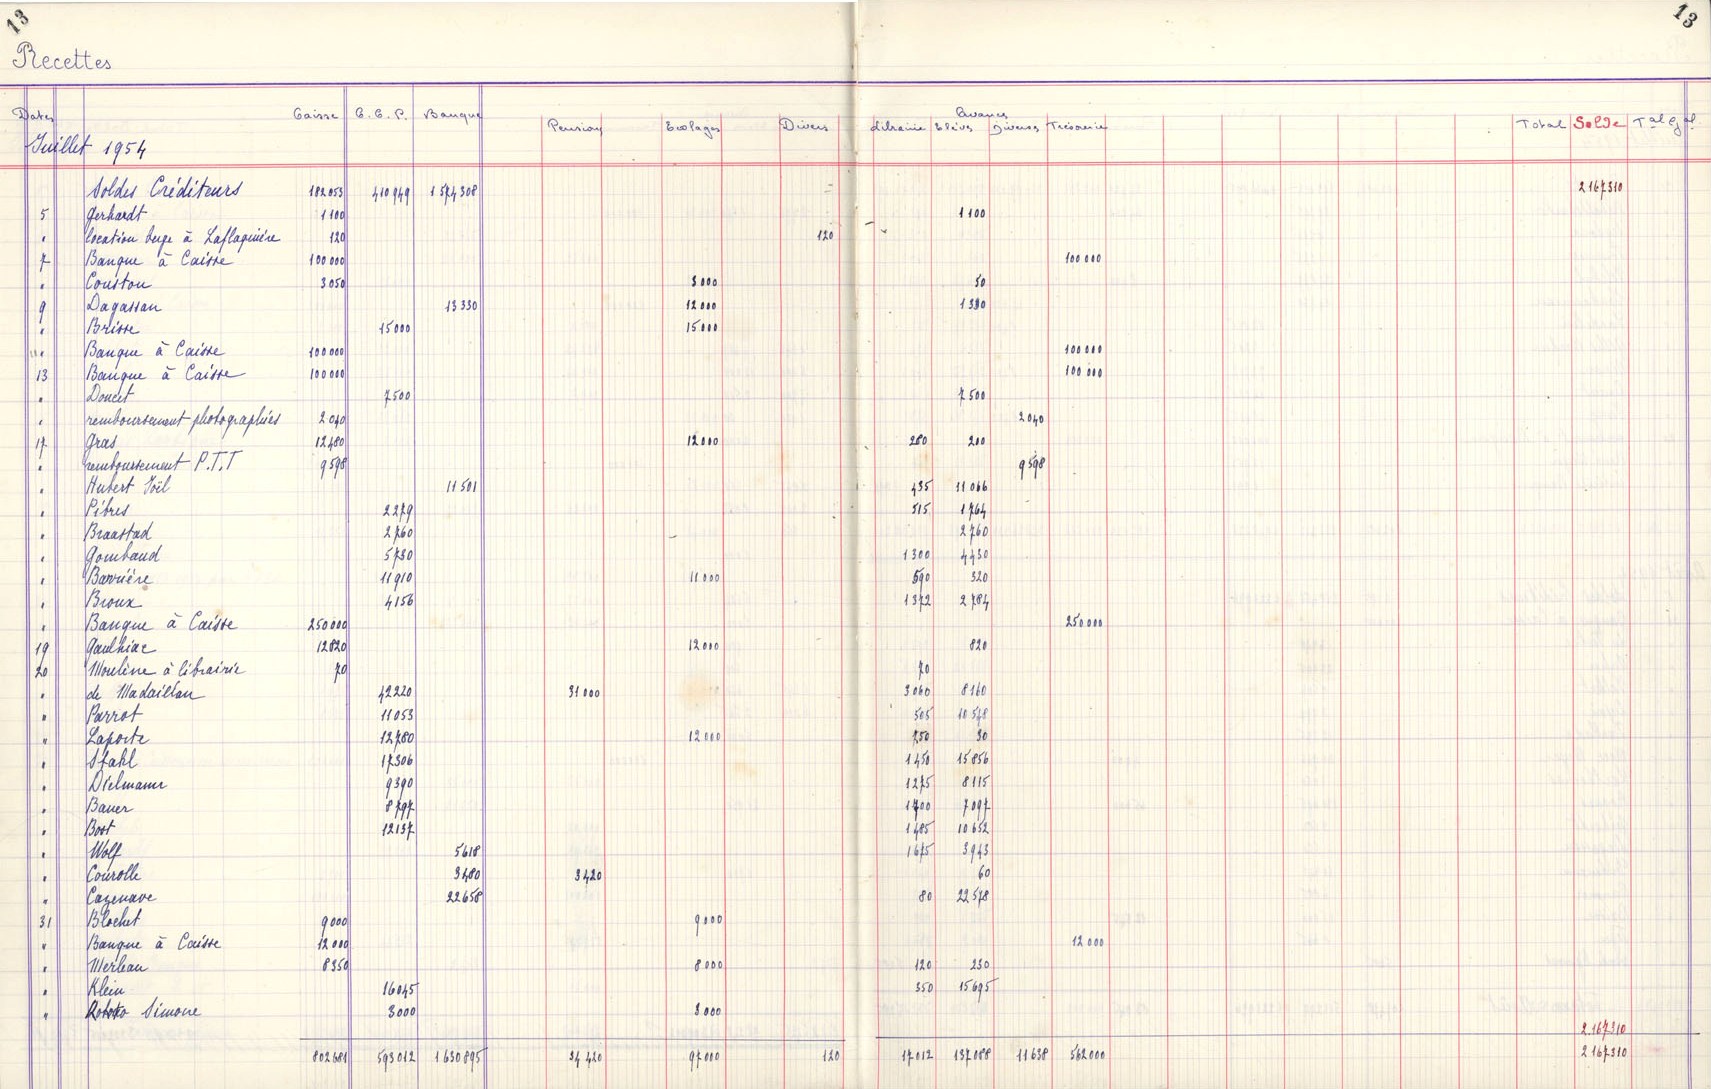 13 13
Recettes
Dates Caisse C.C.P. Banque Pension Ecolages Divers Librairie Elèves Avances Diverses Trésorerie Total Solde Tal Gal
Juillet 1954
Soldes Créditeurs 182053 410949 1574308 2167310
5 Gerhardt 1100 1100
" location berge à Laflaquière 120 120
7 Banque à Caisse 100000 100000
" Couston 3050 3000 50
9 Dagassan 13330 12000 1330
" Brisse 15000 15000
11 " Banque à Caisse 100000 100000
13 Banque à Caisse 100000 100000
" Doucet 7500 7500
" remboursement photographies 2040 2040
17 Gras 12480 12000 280 200
" remboursement P.T.T 9598 9598
" Hubert Joël 11501 435 11066
" Pibres 2279 515 1764
" Braastad 2760 2760
" Gombaud 5730 1300 4430
" Barrière 11910 11000 590 320
" Broux 4156 1372 2784
" Banque à Caisse 250000 250000
19 Gaulhiac 12820 12000 820
20 Moulène à librairie 70 70
" de Madaillan 42220 31000 3060 8160
" Parrot 11053 505 10548
" Laporte 12780 12000 750 30
" Stahl 17306 1450 15856
" Dielmann 9390 1275 8115
" Bauer 8797 1700 7097
" Bost 12137 1485 10652
" Wolf 5618 1675 3943
" Courolle 3480 3420 60
" Cazenave 22658 80 22578
31 Blochet 9000 9000
" Banque à Caisse 12000 12000
" Merleau 8350 8000 120 230
" Klein 16045 350 15695
" Simone 3000 3000
2167310
802681 593012 1630895 34420 97000 120 17012 137088 11638 562000 2167310